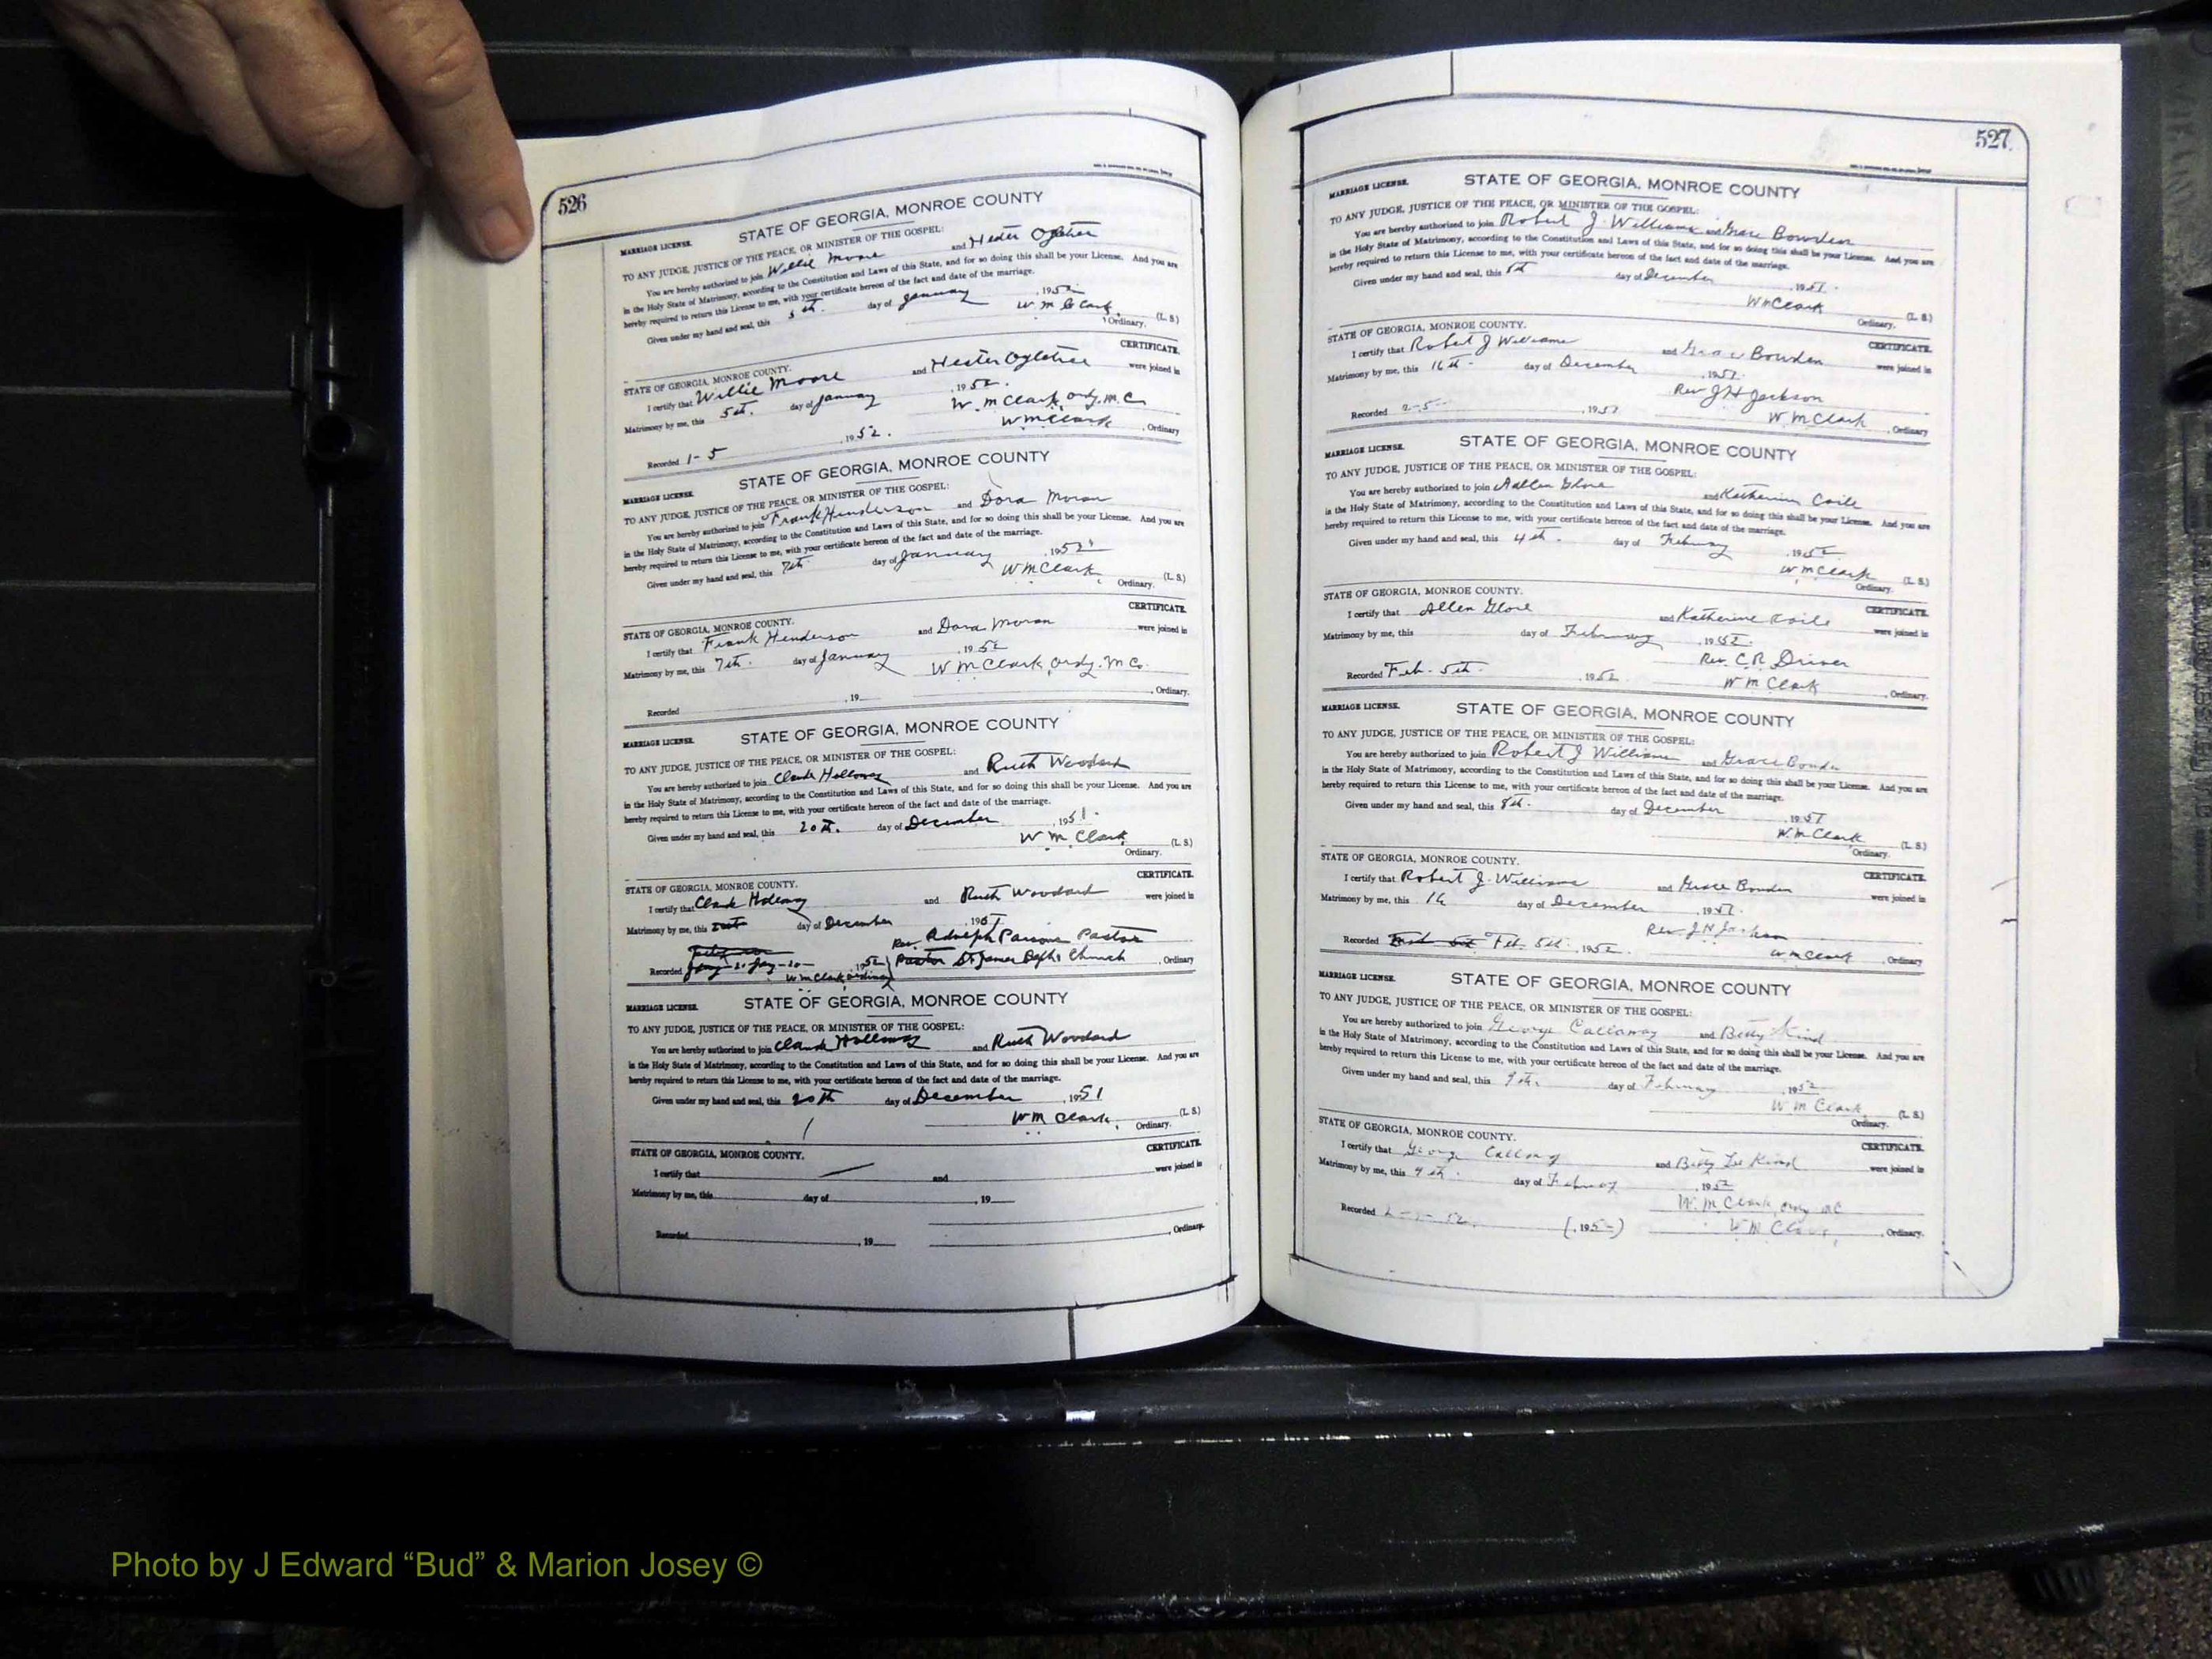 526
MARRIAGE LICENSE. STATE OF GEORGIA, MONROE COUNTY
TO ANY JUDGE, JUSTICE OF THE PEACE, OR MINISTER OF THE GOSPEL:
You are hereby authorized to join Willie Moore and Hester Ogletree
in the Holy State of Matrimony, according to the Constitution and Laws of this State, and for so doing this shall be your License. And you are
hereby required to return this License to me, with your certificate hereon of the fact and date of the marriage.
Given under my hand and seal, this 5th. day of January, 1952
W M Clark, (L. S.)
Ordinary.
STATE OF GEORGIA, MONROE COUNTY. CERTIFICATE.
I certify that Willie Moore and Hester Ogletree were joined in
Matrimony by me, this 5th. day of January, 1952.
W. M Clark, ordy. M. C
Recorded 1-5, 1952. W M Clark, Ordinary
MARRIAGE LICENSE. STATE OF GEORGIA, MONROE COUNTY
TO ANY JUDGE, JUSTICE OF THE PEACE, OR MINISTER OF THE GOSPEL:
You are hereby authorized to join Frank Henderson and Dora Moran
in the Holy State of Matrimony, according to the Constitution and Laws of this State, and for so doing this shall be your License. And you are
hereby required to return this License to me, with your certificate hereon of the fact and date of the marriage.
Given under my hand and seal, this 7th. day of January, 1952
W M Clark, (L. S.)
Ordinary.
STATE OF GEORGIA, MONROE COUNTY. CERTIFICATE.
I certify that Frank Henderson and Dora Moran were joined in
Matrimony by me, this 7th. day of January, 1952
W M Clark, Ordy. M Co.
Recorded , 19 , Ordinary.
MARRIAGE LICENSE. STATE OF GEORGIA, MONROE COUNTY
TO ANY JUDGE, JUSTICE OF THE PEACE, OR MINISTER OF THE GOSPEL:
You are hereby authorized to join Claude Holloway and Ruth Woodard
in the Holy State of Matrimony, according to the Constitution and Laws of this State, and for so doing this shall be your License. And you are
hereby required to return this License to me, with your certificate hereon of the fact and date of the marriage.
Given under my hand and seal, this 20th. day of December, 1951.
W M Clark, (L. S.)
Ordinary.
STATE OF GEORGIA, MONROE COUNTY. CERTIFICATE.
I certify that Claude Holloway and Ruth Woodard were joined in
Matrimony by me, this day of December, 1951
Rev. Adolph Parsons Pastor
Recorded 1952 Pastor St James Bapt. Church, Ordinary
W M Clark, ordinary
MARRIAGE LICENSE. STATE OF GEORGIA, MONROE COUNTY
TO ANY JUDGE, JUSTICE OF THE PEACE, OR MINISTER OF THE GOSPEL:
You are hereby authorized to join Claude Holloway and Ruth Woodard
in the Holy State of Matrimony, according to the Constitution and Laws of this State, and for so doing this shall be your License. And you are
hereby required to return this License to me, with your certificate hereon of the fact and date of the marriage.
Given under my hand and seal, this 20th day of December, 1951
W M Clark, (L. S.)
Ordinary.
STATE OF GEORGIA, MONROE COUNTY. CERTIFICATE.
I certify that and were joined in
Matrimony by me, this day of , 19
Recorded , 19 , Ordinary.
527
MARRIAGE LICENSE. STATE OF GEORGIA, MONROE COUNTY
TO ANY JUDGE, JUSTICE OF THE PEACE, OR MINISTER OF THE GOSPEL:
You are hereby authorized to join Robert J. Williams and Grace Bowden
in the Holy State of Matrimony, according to the Constitution and Laws of this State, and for so doing this shall be your License. And you are
hereby required to return this License to me, with your certificate hereon of the fact and date of the marriage.
Given under my hand and seal, this 8th day of December, 1951.
W M Clark (L. S.)
Ordinary.
STATE OF GEORGIA, MONROE COUNTY. CERTIFICATE.
I certify that Robert J Williams and Grace Bowden were joined in
Matrimony by me, this 16th. day of December, 1951.
Rev J H Jackson
Recorded 2-5-, 1952 W. M Clark, Ordinary
MARRIAGE LICENSE. STATE OF GEORGIA, MONROE COUNTY
TO ANY JUDGE, JUSTICE OF THE PEACE, OR MINISTER OF THE GOSPEL:
You are hereby authorized to join Allen Glore and Katherine Coile
in the Holy State of Matrimony, according to the Constitution and Laws of this State, and for so doing this shall be your License. And you are
hereby required to return this License to me, with your certificate hereon of the fact and date of the marriage.
Given under my hand and seal, this 4th. day of February, 1952
W M Clark (L. S.)
Ordinary.
STATE OF GEORGIA, MONROE COUNTY. CERTIFICATE.
I certify that Allen Glore and Katherine Coile were joined in
Matrimony by me, this day of February, 1952.
Rev. C. R. Driver
Recorded Feb. 5th., 1952. W M Clark, Ordinary.
MARRIAGE LICENSE. STATE OF GEORGIA, MONROE COUNTY
TO ANY JUDGE, JUSTICE OF THE PEACE, OR MINISTER OF THE GOSPEL:
You are hereby authorized to join Robert J Williams and Grace Bowden
in the Holy State of Matrimony, according to the Constitution and Laws of this State, and for so doing this shall be your License. And you are
hereby required to return this License to me, with your certificate hereon of the fact and date of the marriage.
Given under my hand and seal, this 8th. day of December, 1951
W. M Clark (L. S.)
Ordinary.
STATE OF GEORGIA, MONROE COUNTY. CERTIFICATE.
I certify that Robert J. Williams and Grace Bowden were joined in
Matrimony by me, this 16 day of December, 1951.
Rev. J H Jackson
Recorded Feb. 5th., 1952. W M Clark, Ordinary
MARRIAGE LICENSE. STATE OF GEORGIA, MONROE COUNTY
TO ANY JUDGE, JUSTICE OF THE PEACE, OR MINISTER OF THE GOSPEL:
You are hereby authorized to join George Callaway and Betty Kind
in the Holy State of Matrimony, according to the Constitution and Laws of this State, and for so doing this shall be your License. And you are
hereby required to return this License to me, with your certificate hereon of the fact and date of the marriage.
Given under my hand and seal, this 9th. day of February, 1952
W M Clark, (L. S.)
Ordinary.
STATE OF GEORGIA, MONROE COUNTY. CERTIFICATE.
I certify that George Callaway and Betty Lee Kind were joined in
Matrimony by me, this 9th. day of February, 1952
W. M. Clark, ordy MC
Recorded (, 195-) W M Clark, Ordinary.
Photo by J Edward “Bud” & Marion Josey ©